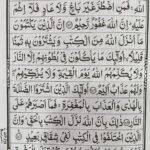 اللّٰهِ ۚ فَمَنِ اضْطُرَّ غَيْرَ بَاغٍ وَّلَا عَادٍ فَلَآ اِثْمَ
عَلَيْهِ ۭ اِنَّ اللّٰهَ غَفُوْرٌ رَّحِيْمٌ اِنَّ الَّذِيْنَ يَكْتُمُوْنَ
مَآ اَنْزَلَ اللّٰهُ مِنَ الْكِتٰبِ وَيَشْتَرُوْنَ بِهٖ ثَمَنًا
قَلِيْلًا ۙ اُولٰۗىِٕكَ مَا يَاْكُلُوْنَ فِيْ بُطُوْنِهِمْ اِلَّا النَّارَ
وَلَا يُكَلِّمُهُمُ اللّٰهُ يَوْمَ الْقِيٰمَةِ وَلَا يُزَكِّيْهِمْ ښ وَلَهُمْ
عَذَابٌ اَلِيْمٌ اُولٰۗىِٕكَ الَّذِيْنَ اشْتَرَوُا الضَّلٰلَةَ
بِالْهُدٰى وَالْعَذَابَ بِالْمَغْفِرَةِ ۚ فَمَآ اَصْبَرَهُمْ عَلَى
النَّارِ ذٰلِكَ بِاَنَّ اللّٰهَ نَزَّلَ الْكِتٰبَ بِالْحَقِّ ۭ وَاِنَّ
الَّذِيْنَ اخْتَلَفُوْا فِي الْكِتٰبِ لَفِيْ شِقَاقٍۢ بَعِيْدٍ